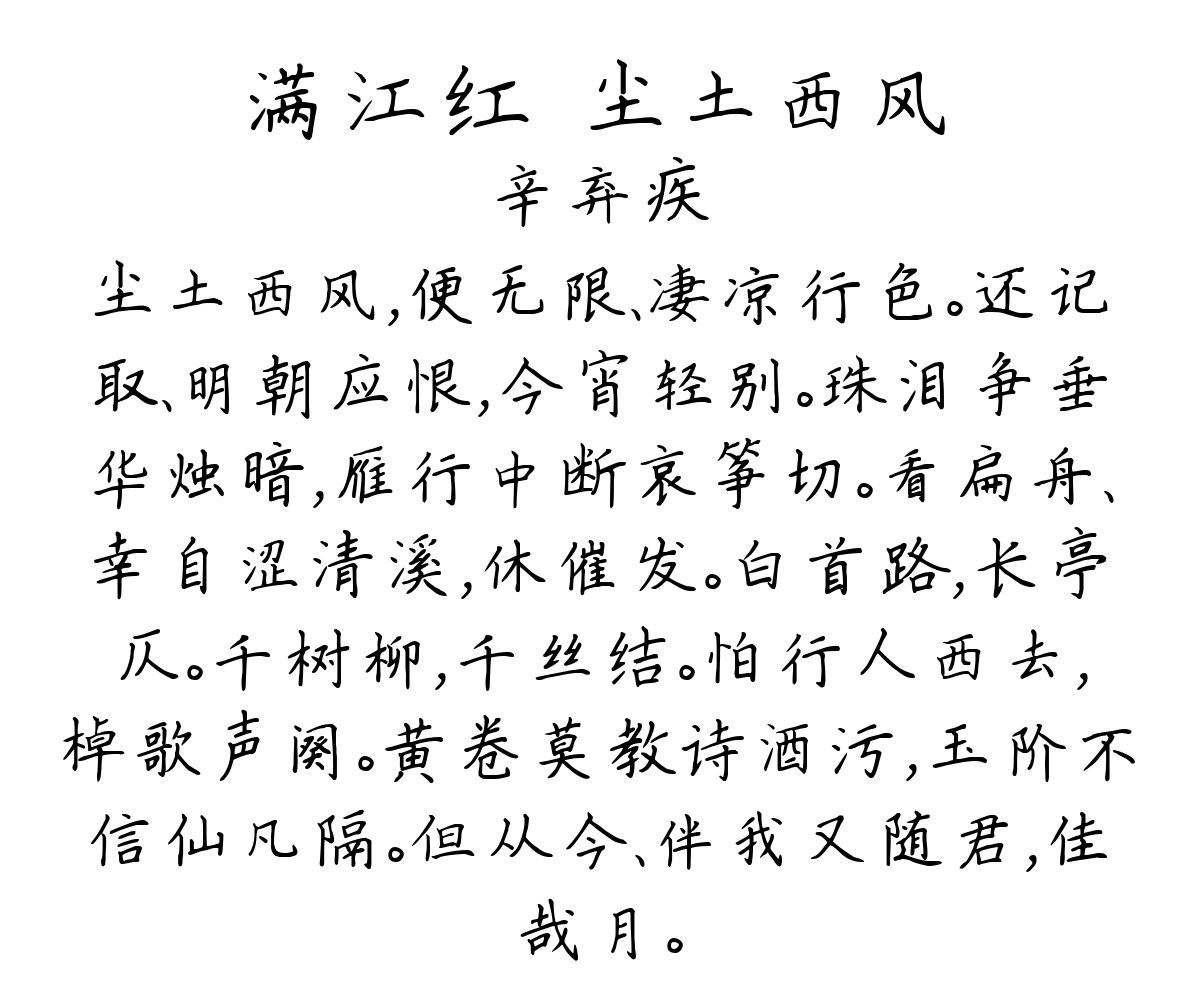 满江红 尘土西风
辛弃疾
尘土西风,便无限、凄凉行色。还记
取、明朝应恨,今宵轻别。珠泪争垂
华烛暗,雁行中断哀筝切。看扁舟、
幸自涩清溪,休催发。白首路,长亭
仄。千树柳,千丝结。怕行人西去,
棹歌声阕。黄卷莫教诗酒污,玉阶不
信仙凡隔。但从今、伴我又随君,佳
哉月。